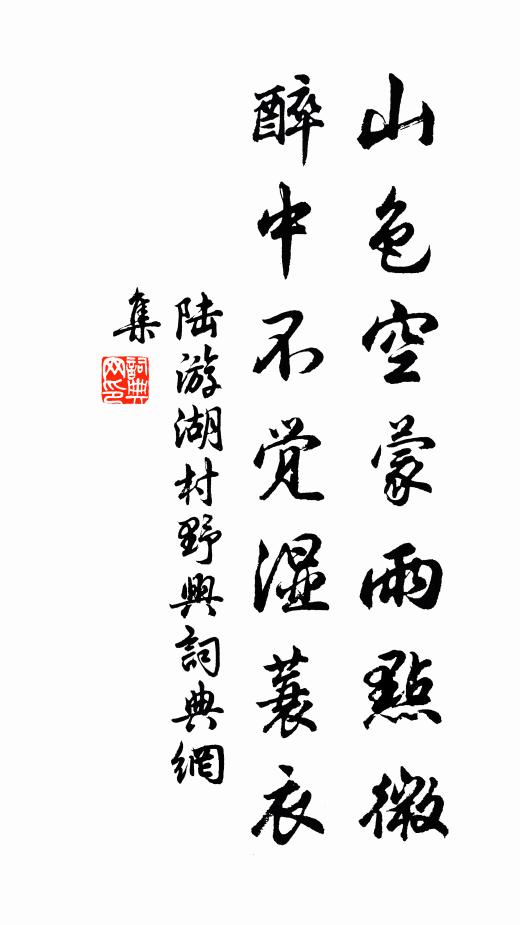 山色空蒙雨點微
醉中不觉湿蓑衣
陆游湖村野興詞典網
集
詞典网印